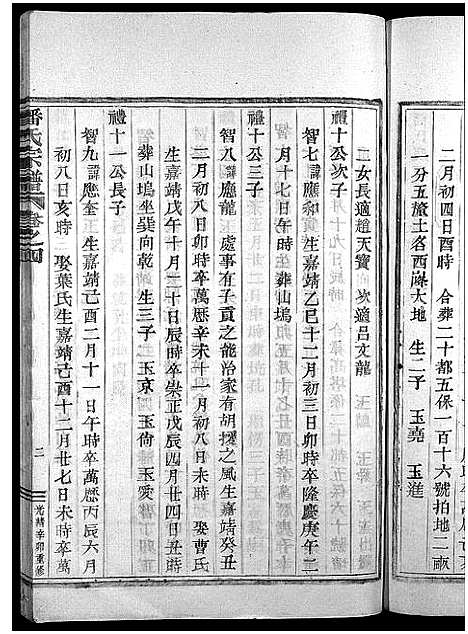 二月初四日酉時 合葬二十都五保一百十六號拍地二畝
一分五厘土名西滌大地 生二子 玉堯 玉進
二女長適趙天寶 次適呂文龍
禮十公次子
智七諱應和 生嘉靖乙巳十二月初三日卯時卒隆慶庚午二
月十七日午時 葬山塢
禮十公三子
智八諱應龍 處事有子貢之能治家有胡擢之風生嘉靖癸丑
二月初八日卯時卒萬歷辛未十一月初八日未時 娶曹氏
生嘉靖戊午十月二十日辰時卒崇正戊辰四月廿四日丑時
葬山塢坐巽向乾 生三子 玉京 玉倚 玉愛
禮十一公長子
智九諱應奎 生嘉靖己酉二月十一日午時卒萬歷丙辰六月
初八日亥時 娶葉氏生嘉靖己酉十二月廿七日未時卒萬
潘氏宗譜 卷之四
二
光緒辛卯重修